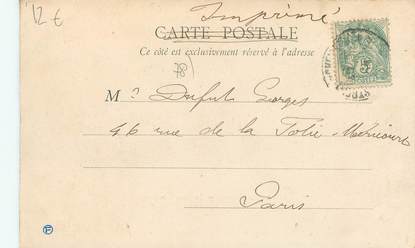 12 €
Imprimé
CARTE POSTALE
Ce côté est exclusivement réservé à l'adresse
78
M. Dufut Georges
46 rue de la Folie-Méricourt
Paris